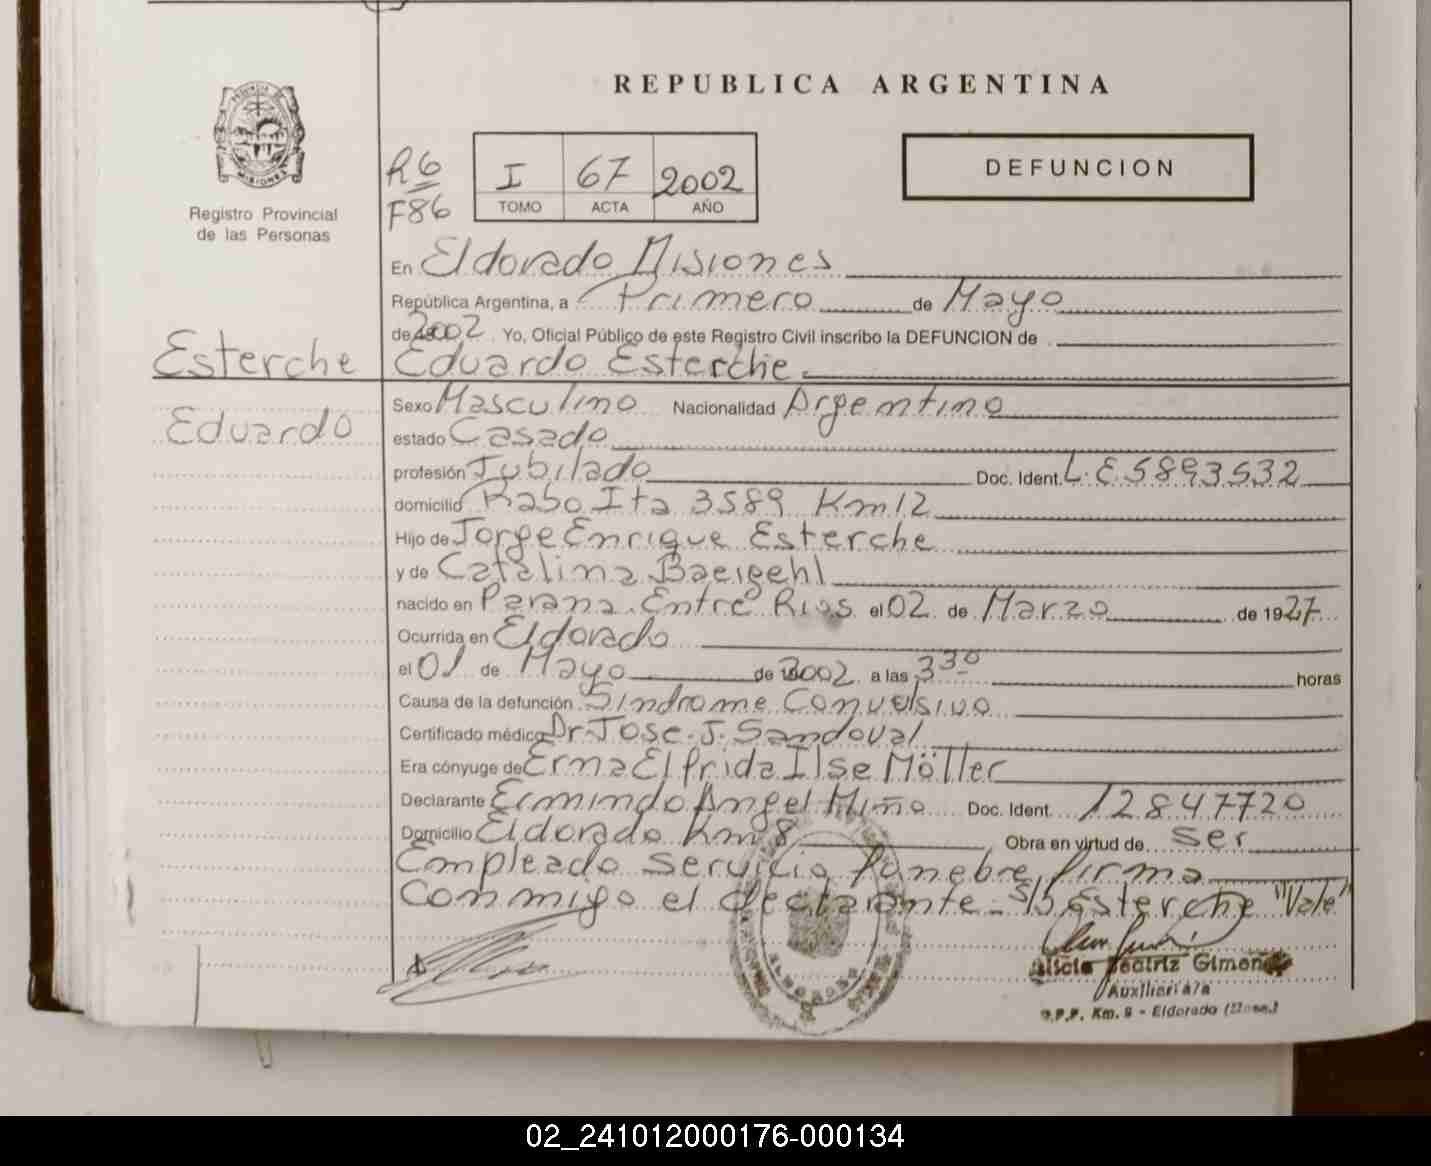 REPUBLICA ARGENTINA
PROVINCIA DE MISIONES
Registro Provincial
de las Personas
R6
F86
I 67 2002
TOMO ACTA AÑO
DEFUNCION
En Eldorado Misiones
República Argentina, a Primero de Mayo
de 2002. Yo, Oficial Público de este Registro Civil inscribo la DEFUNCION de
Esterche
Eduardo
Eduardo Esterche
Sexo Masculino Nacionalidad Argentino
estado Casado
profesión Jubilado Doc. Ident. L.E 5893532
domicilio Rabo Ita 3589 Km 12
Hijo de Jorge Enrique Esterche
y de Catalina Baeigehl
nacido en Parana Entre Rios el 02 de Marzo de 1927
Ocurrida en Eldorado
el 01 de Mayo de 2002 a las 3 30 horas
Causa de la defunción Sindrome Convulsivo
Certificado médico Dr Jose J. Sandoval
Era cónyuge de Erma Elfrida Ilse Möller
Declarante Ermindo Angel Miño Doc. Ident. 12847720
Domicilio Eldorado Km 8 Obra en virtud de ser
Empleado Servicio funebre, firma
conmigo el declarante - Esterche "Vale"
Alicia Beatriz Gimenez
Auxiliar a/a
Km. 9 - Eldorado
02_241012000176-000134